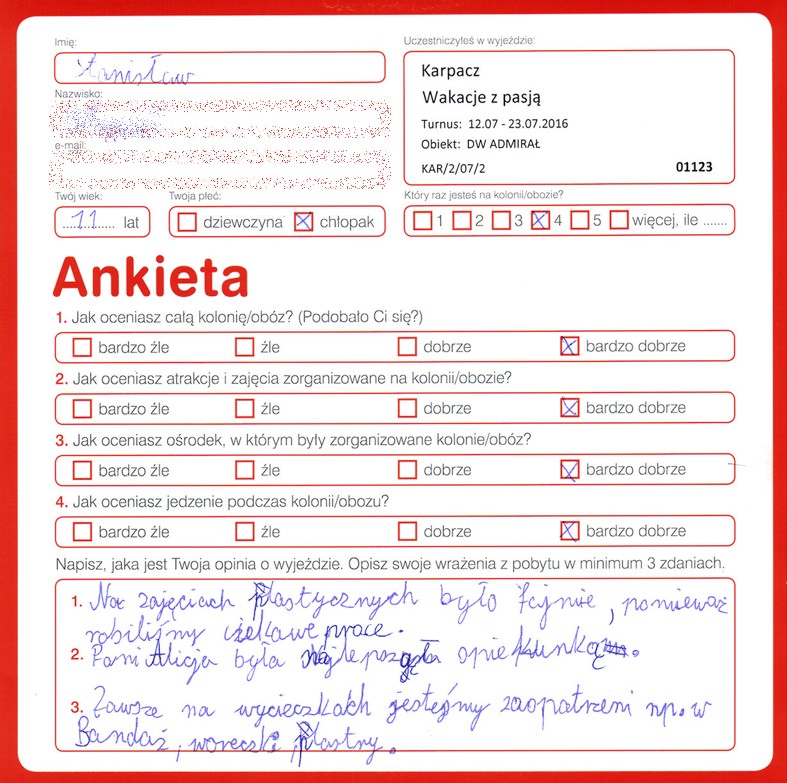 Imię:
Stanisław
Nazwisko:
e-mail:
Twój wiek:
11 lat
Twoja płeć:
dziewczyna chłopak
Uczestniczyłeś w wyjeździe:
Karpacz
Wakacje z pasją
Turnus: 12.07 - 23.07.2016
Obiekt: DW ADMIRAŁ
KAR/2/07/2 01123
Który raz jesteś na kolonii/obozie?
1 2 3 4 5 więcej, ile .......
Ankieta
1. Jak oceniasz całą kolonię/obóz? (Podobało Ci się?)
bardzo źle źle dobrze bardzo dobrze
2. Jak oceniasz atrakcje i zajęcia zorganizowane na kolonii/obozie?
bardzo źle źle dobrze bardzo dobrze
3. Jak oceniasz ośrodek, w którym były zorganizowane kolonie/obóz?
bardzo źle źle dobrze bardzo dobrze
4. Jak oceniasz jedzenie podczas kolonii/obozu?
bardzo źle źle dobrze bardzo dobrze
Napisz, jaka jest Twoja opinia o wyjeździe. Opisz swoje wrażenia z pobytu w minimum 3 zdaniach.
1. Na zajęciach plastycznych było fajnie, ponieważ
robiliśmy ciekawe prace.
2. Pani Alicja była opiekunką.
3. Zawsze na wycieczkach jesteśmy zaopatrzeni np. w
Bandaż, woreczki plastry.